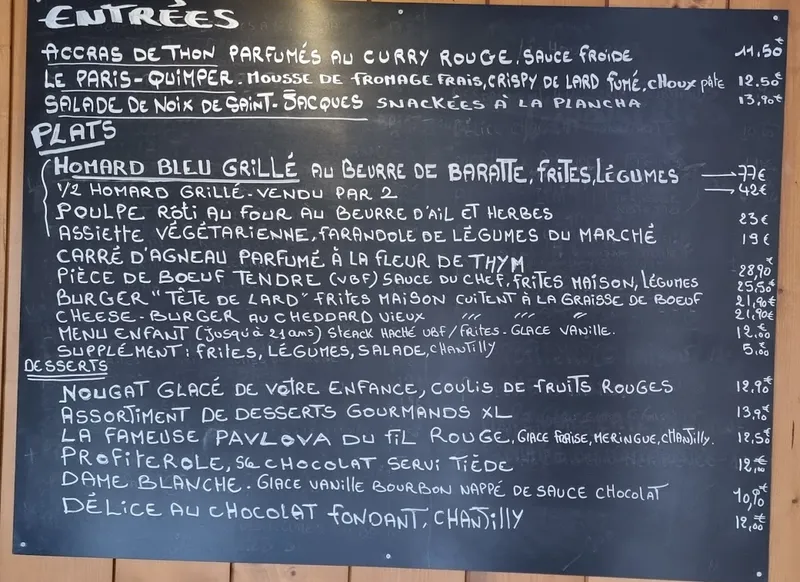 ENTRÉES
ACCRAS DE THON PARFUMÉS AU CURRY ROUGE. SAUCE FROIDE 11,50€
LE PARIS-QUIMPER. MOUSSE DE FROMAGE FRAIS, CRISPY DE LARD FUMÉ, CHOUX PÂTE 12.50€
SALADE DE NOIX DE SAINT-JACQUES SNACKÉES À LA PLANCHA 13,90€
PLATS
HOMARD BLEU GRILLÉ AU BEURRE DE BARATTE, FRITES, LÉGUMES 77€
1/2 HOMARD GRILLÉ-VENDU PAR 2 42€
POULPE RÔTI AU FOUR AU BEURRE D'AIL ET HERBES 23€
ASSIETTE VÉGÉTARIENNE, FARANDOLE DE LÉGUMES DU MARCHÉ 19€
CARRÉ D'AGNEAU PARFUMÉ À LA FLEUR DE THYM 28,90€
PIÈCE DE BOEUF TENDRE (VBF) SAUCE DU CHEF, FRITES MAISON, LÉGUMES 25,50€
BURGER "TÊTE DE LARD" FRITES MAISON CUITENT À LA GRAISSE DE BOEUF 21,90€
CHEESE-BURGER AU CHEDDARD VIEUX /// /// // /// 21,90€
MENU ENFANT (Jusqu'à 21 ans) STEACK HACHÉ VBF/FRITES-GLACE VANILLE. 12,00€
SUPPLÉMENT: FRITES, LÉGUMES, SALADE, CHANTILLY 5,00€
DESSERTS
NOUGAT GLACÉ DE VOTRE ENFANCE, COULIS DE FRUITS ROUGES 12,90€
ASSORTIMENT DE DESSERTS GOURMANDS XL 13,90€
LA FAMEUSE PAVLOVA DU FIL ROUGE, GLACE FRAISE, MERINGUE, CHANTILLY. 12,50€
PROFITEROLE, Sce CHOCOLAT SERVI TIÈDE 12,00€
DAME BLANCHE. GLACE VANILLE BOURBON NAPPÉ DE SAUCE CHOCOLAT 10,90€
DÉLICE AU CHOCOLAT FONDANT, CHANTILLY 12,00€